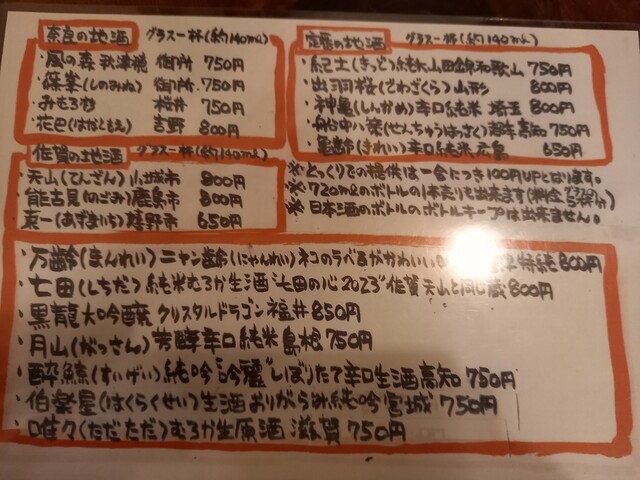 奈良の地酒 グラス一杯(約140mL)
・風の森 秋津穂 御所 750円
・篠峯(しのみね) 御所 750円
・みむろ杉 桜井 750円
・花巴(はなともえ) 吉野 800円
佐賀の地酒 グラス一杯(約140mL)
・天山(てんざん) 小城市 800円
・能古見(のごみ) 鹿島市 800円
・東一(あずまいち) 嬉野市 650円
定番の地酒 グラス一杯(約140mL)
・紀土(きっど)純大山田錦 和歌山 750円
・出羽桜(でわざくら)山形 800円
・神亀(しんかめ)辛口純米 埼玉 800円
・船中八策(せんちゅうはっさく)超辛 高知 750円
・亀齢(きれい)辛口純米 広島 650円
※とっくりでの提供は一合につき100円UPとなります。
※720mLのボトルの1本売りも出来ます(料金
※日本酒のボトルのボトルキープは出来ません。
・万齢(まんれい)ニャン齢(にゃんれい)ネコのラベルがかわいい 特純 800円
・七田(しちだ)純米むろか生酒"七田の心2023"佐賀 天山と同じ蔵 800円
・黒龍 大吟醸 クリスタルドラゴン 福井 850円
・月山(がっさん)芳醇辛口純米 島根 750円
・酔鯨(すいげい)純吟 吟麗"しぼりたて辛口生酒 高知 750円
・伯楽星(はくらくせい)生酒 おりがらみ純吟 宮城 750円
・唯々(ただただ)むろか生原酒 滋賀 750円